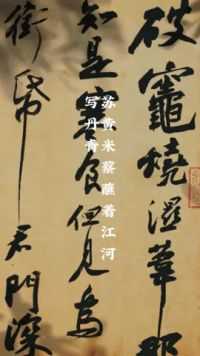 破竈燒濕葦那
知是寒食但見烏
銜帋君門深
苏黄米蔡蘸着江河
写丹青